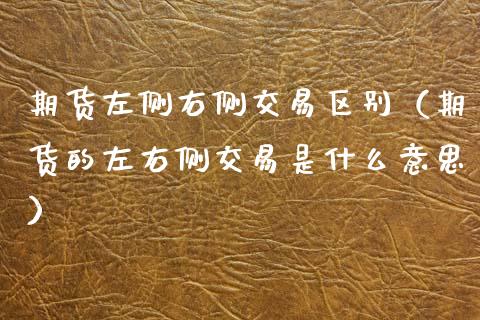 期货左侧右侧交易区别（期
货的左右侧交易是什么意思
）